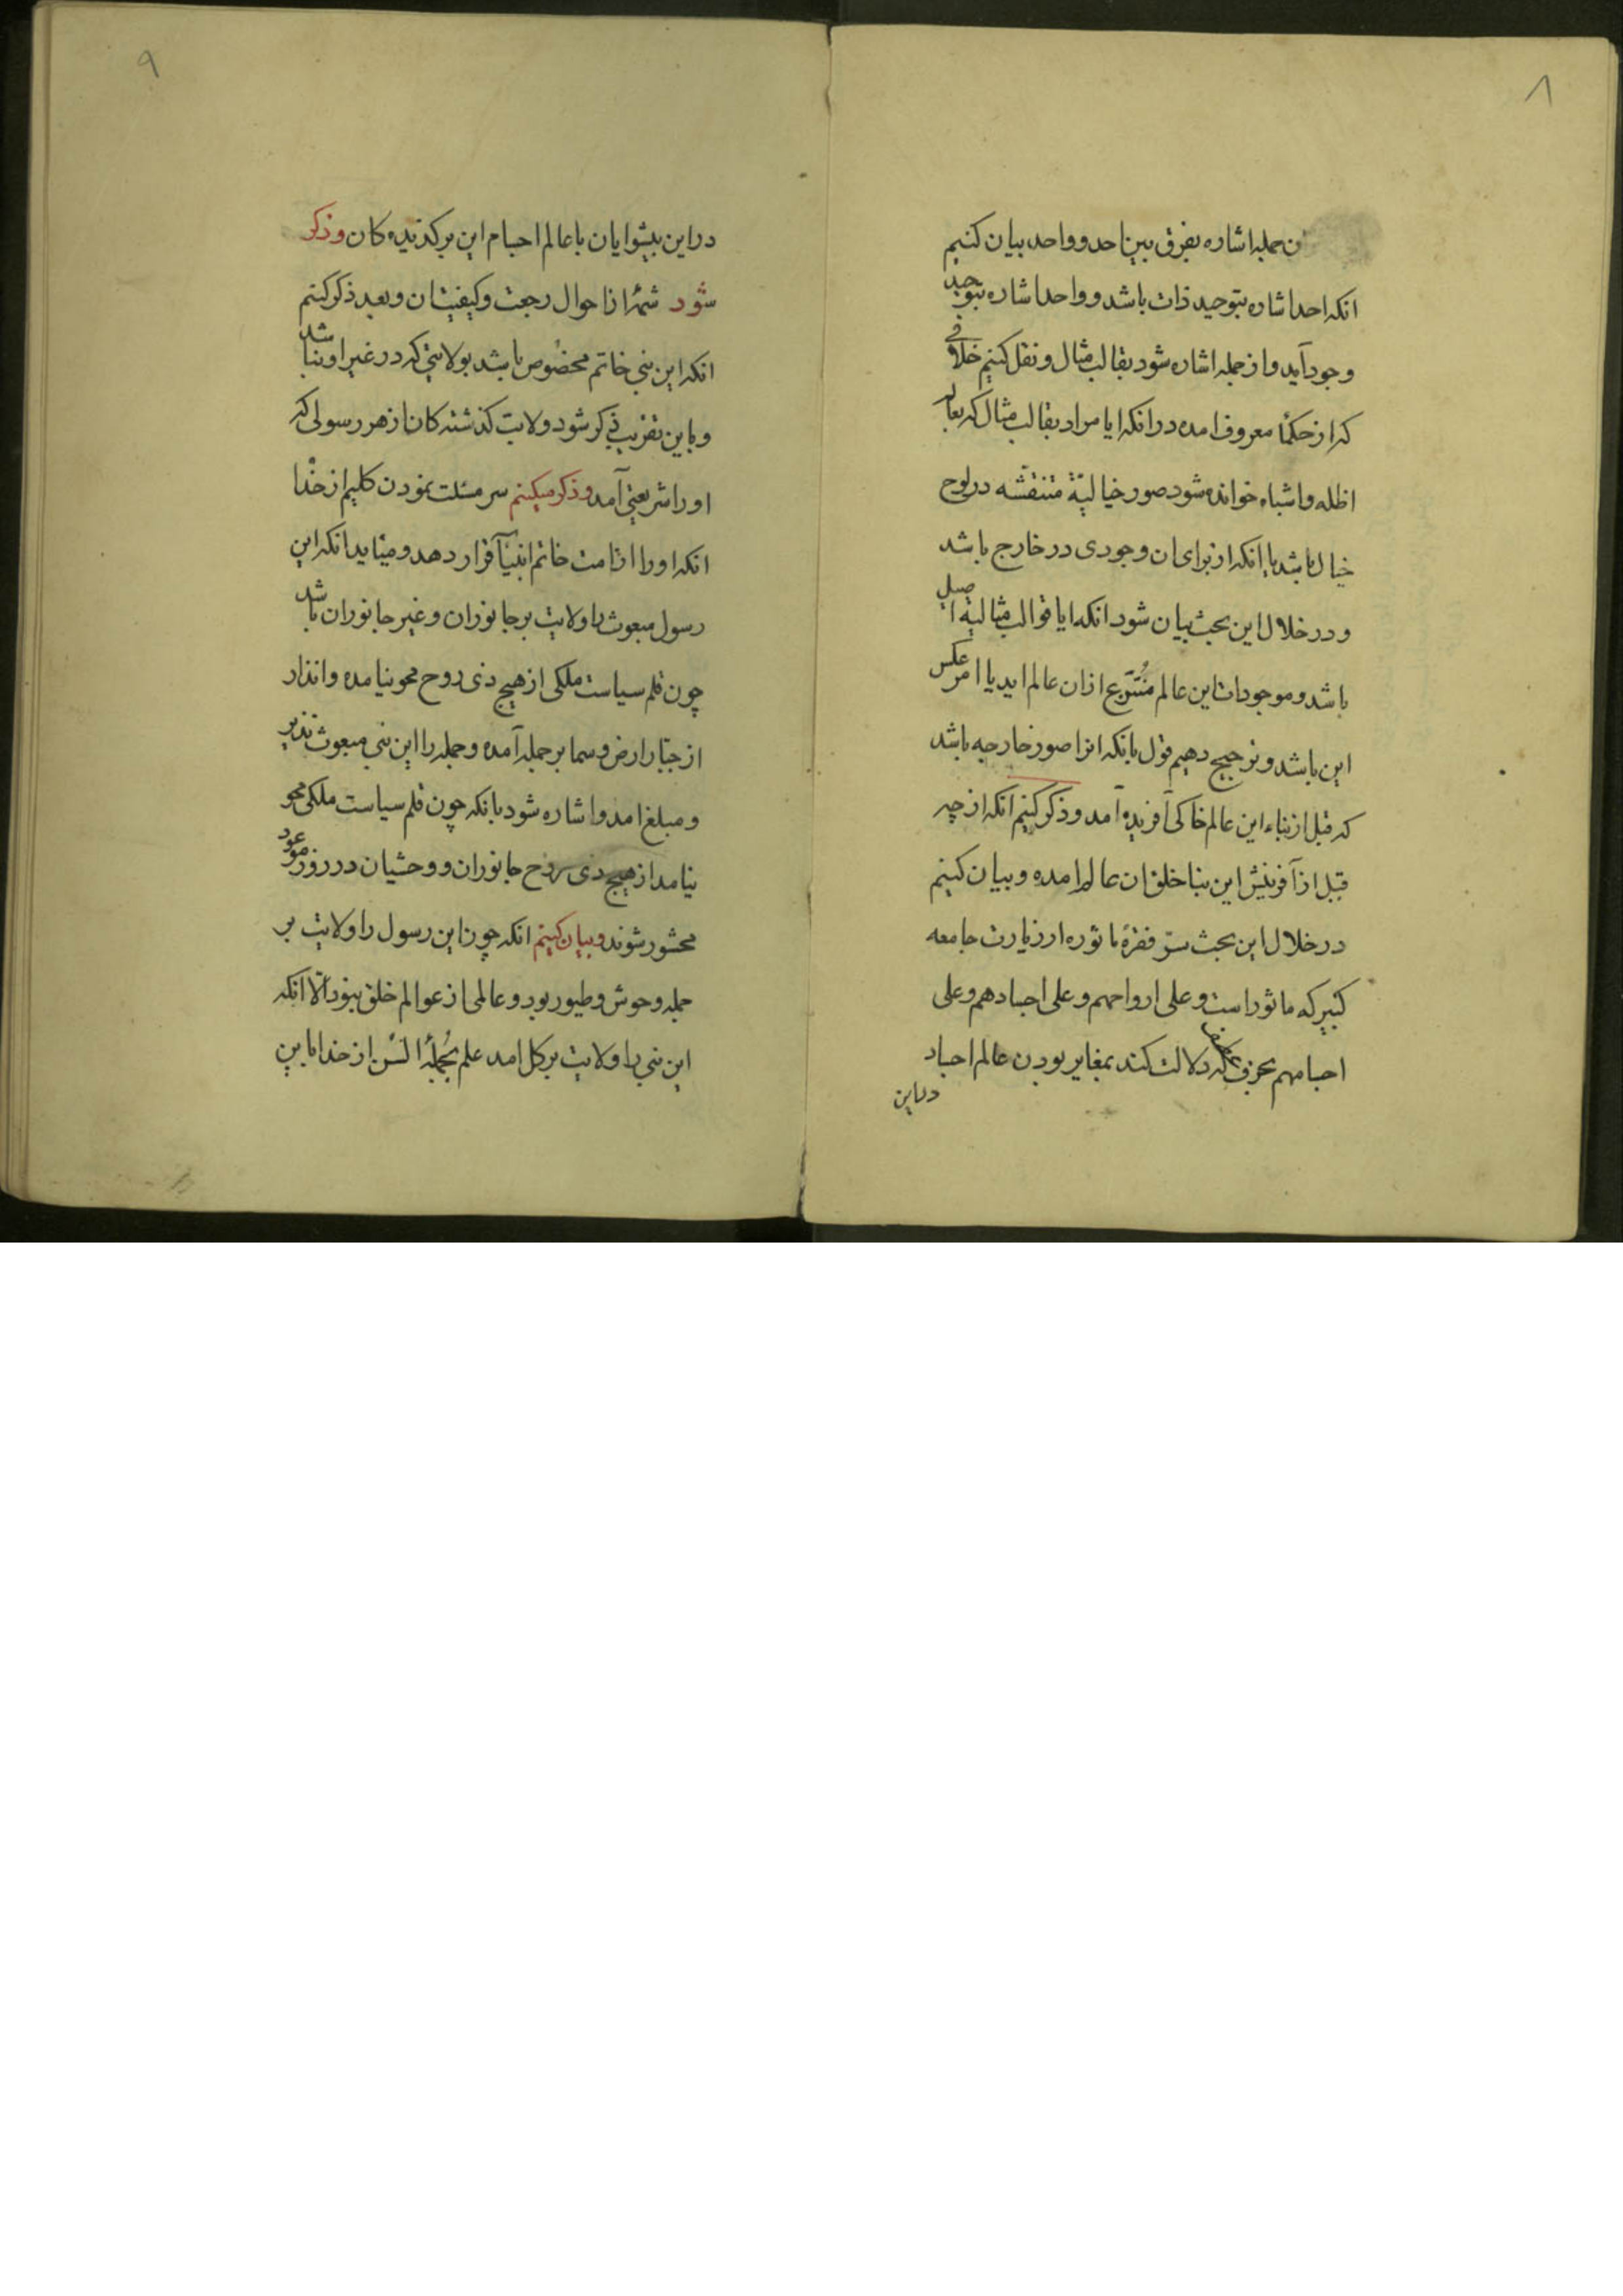 ۸
ن جمله اشاره بفرق بین احد و واحد بیان کنیم
انکه احد اشاره بتوحید ذات باشد و واحد اشاره بتوحید
وجود آید و از جمله اشاره شود بقالب مثال و نقل کنیم خلافی
که از حکما معروف امده در انکه ایا مراد بقالب مثال که بعالم
اظله و اشباه خوانده شود صور خیالیّة متنقشه در لوح
خیال باشد یا انکه از برای ان وجودی در خارج باشد
و در خلال این بحث بیان شود انکه ایا قوالب مثالیة اصیل
باشد و موجودات این عالم متنوّع از ان عالم اید یا امر عکس
این باشد و ترجیح دهیم قول بانکه انرا صور خارجه باشد
که قبل از بناء این عالم خاکی آفریده آمد و ذکر کنیم انکه از چه
قبل از آفرینش این بنا خلق ان عالم امده و بیان کنیم
در خلال این بحث سرّ فقرة ماثوره از زیارت جامعه
کبیر که ماثور است و علی ارواحهم و علی اجسادهم و علی
اجسامهم بحرف که دلالت کند بمغایر بودن عالم اجساد
در این
۹
در این پیشوایان با عالم اجسام این برگذیده کان و ذکر
شود شمّهٔ از احوال رجعت و کیفیت ان و بعد ذکر کنیم
انکه این نبی خاتم مخصوص باشد بولایتی که در غیر او نباشد
و باین تقریب ذکر شود ولایت کذشته کان از هر رسولی که
او را شریعتی آمد و ذکر میکنیم سر مسئلت نمودن کلیم از خدا
انکه او را از امت خاتم انبیآ قرار دهد و میآید انکه این
رسول مبعوث را ولایت بر جانوران و غیر جانوران باشد
چون قلم سیاست ملکی از هیچ ذی روح محو نیامده و انذار
از جبّار ارض و سما بر جمله آمده و جمله را این نبی مبعوث نذیر
و مبلغ امد و اشاره شود بانکه چون قلم سیاست ملکی محو
نیامد از هیچ ذی روح جانوران و وحشیان در روز موعود
محشور شوند و بیان کنیم انکه چون این رسول را ولایت بر
جمله وحوش و طیور بود و عالمی از عوالم خلق نبود الّا انکه
این نبی را ولایت بر کل امد علم بجملهٔ السُن از خدا باین